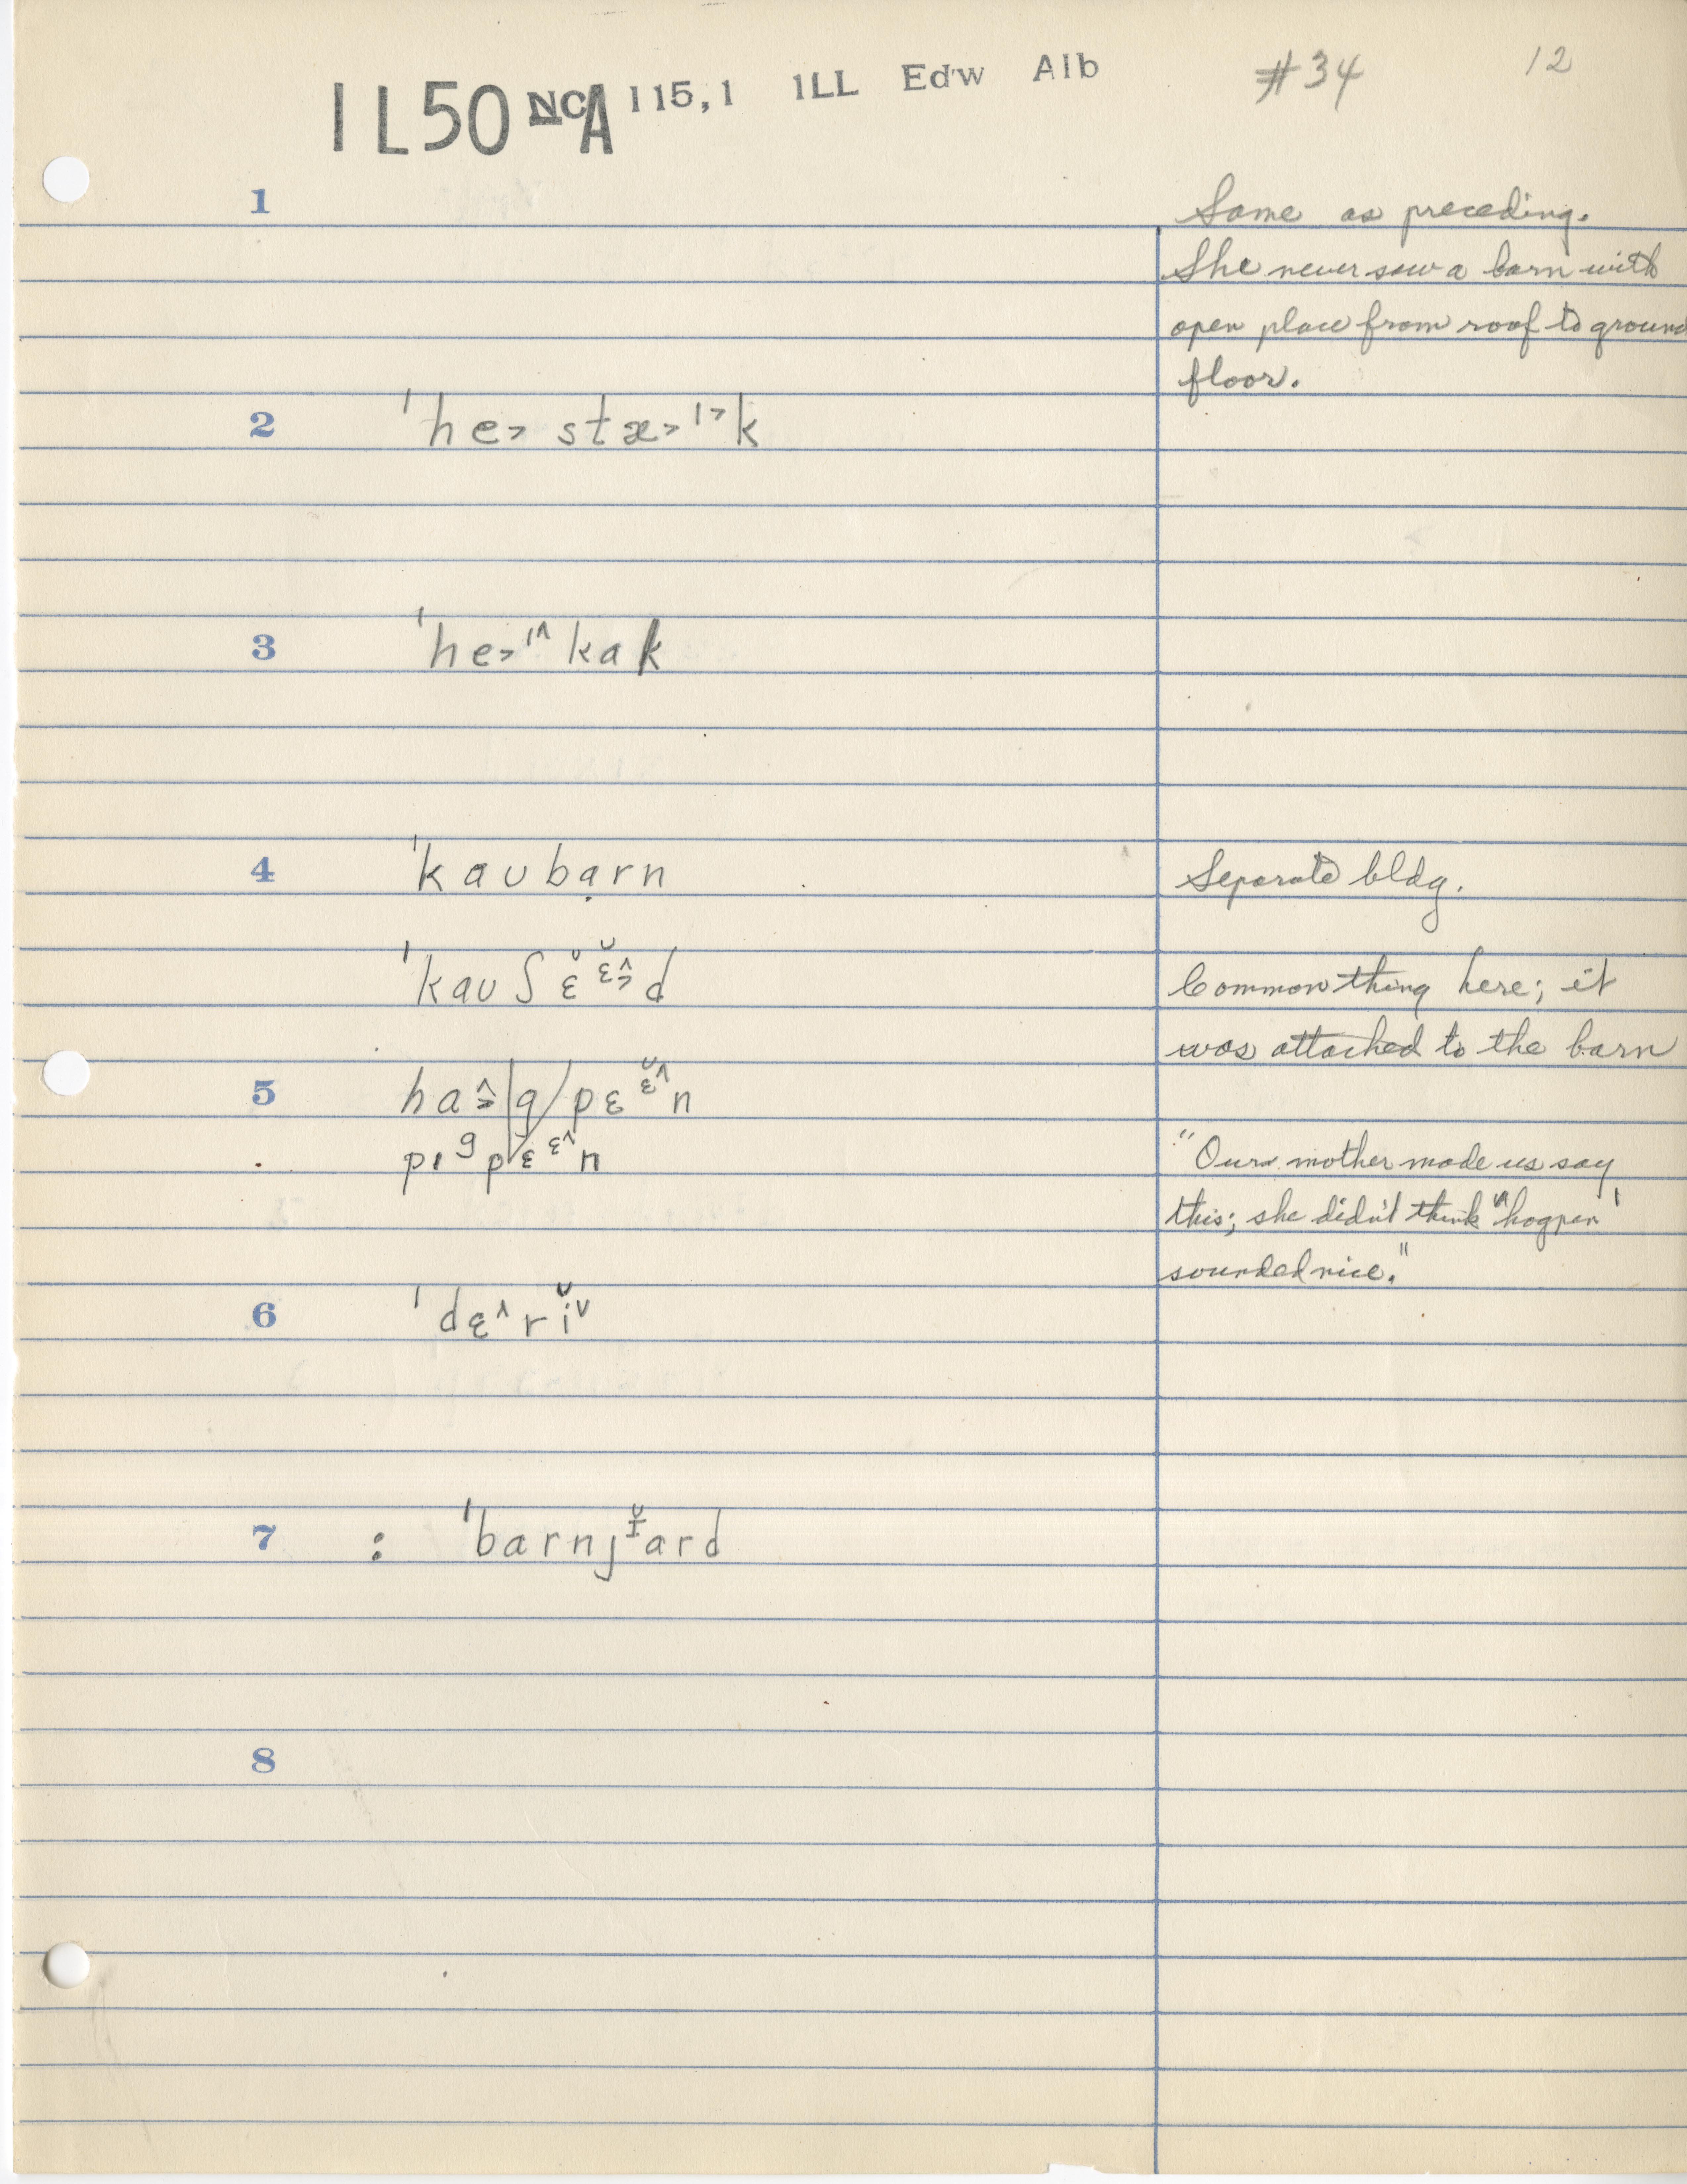 1L50 NCA 115,1 ILL Edw Alb #34 12
1 Same as preceding.
She never saw a barn with
open place from roof to ground
floor.
2 ˈhe˃ stæ˃ ᶦ˃k
3 ˈhe˃ᶦ^ kak
4 ˈkaʊbạrn Separate bldg.
ˈkaʊʃɛᵋd Common thing here; it
was attached to the barn
5 ha˃|g/pɛᵋ^n
pɪᵍpɛᵋ^n "Our mother made us say
this; she didn't think "hogpen'
sounded nice."
6 ˈdɛ^riˇ
7 : ˈbarnjᶦard
8